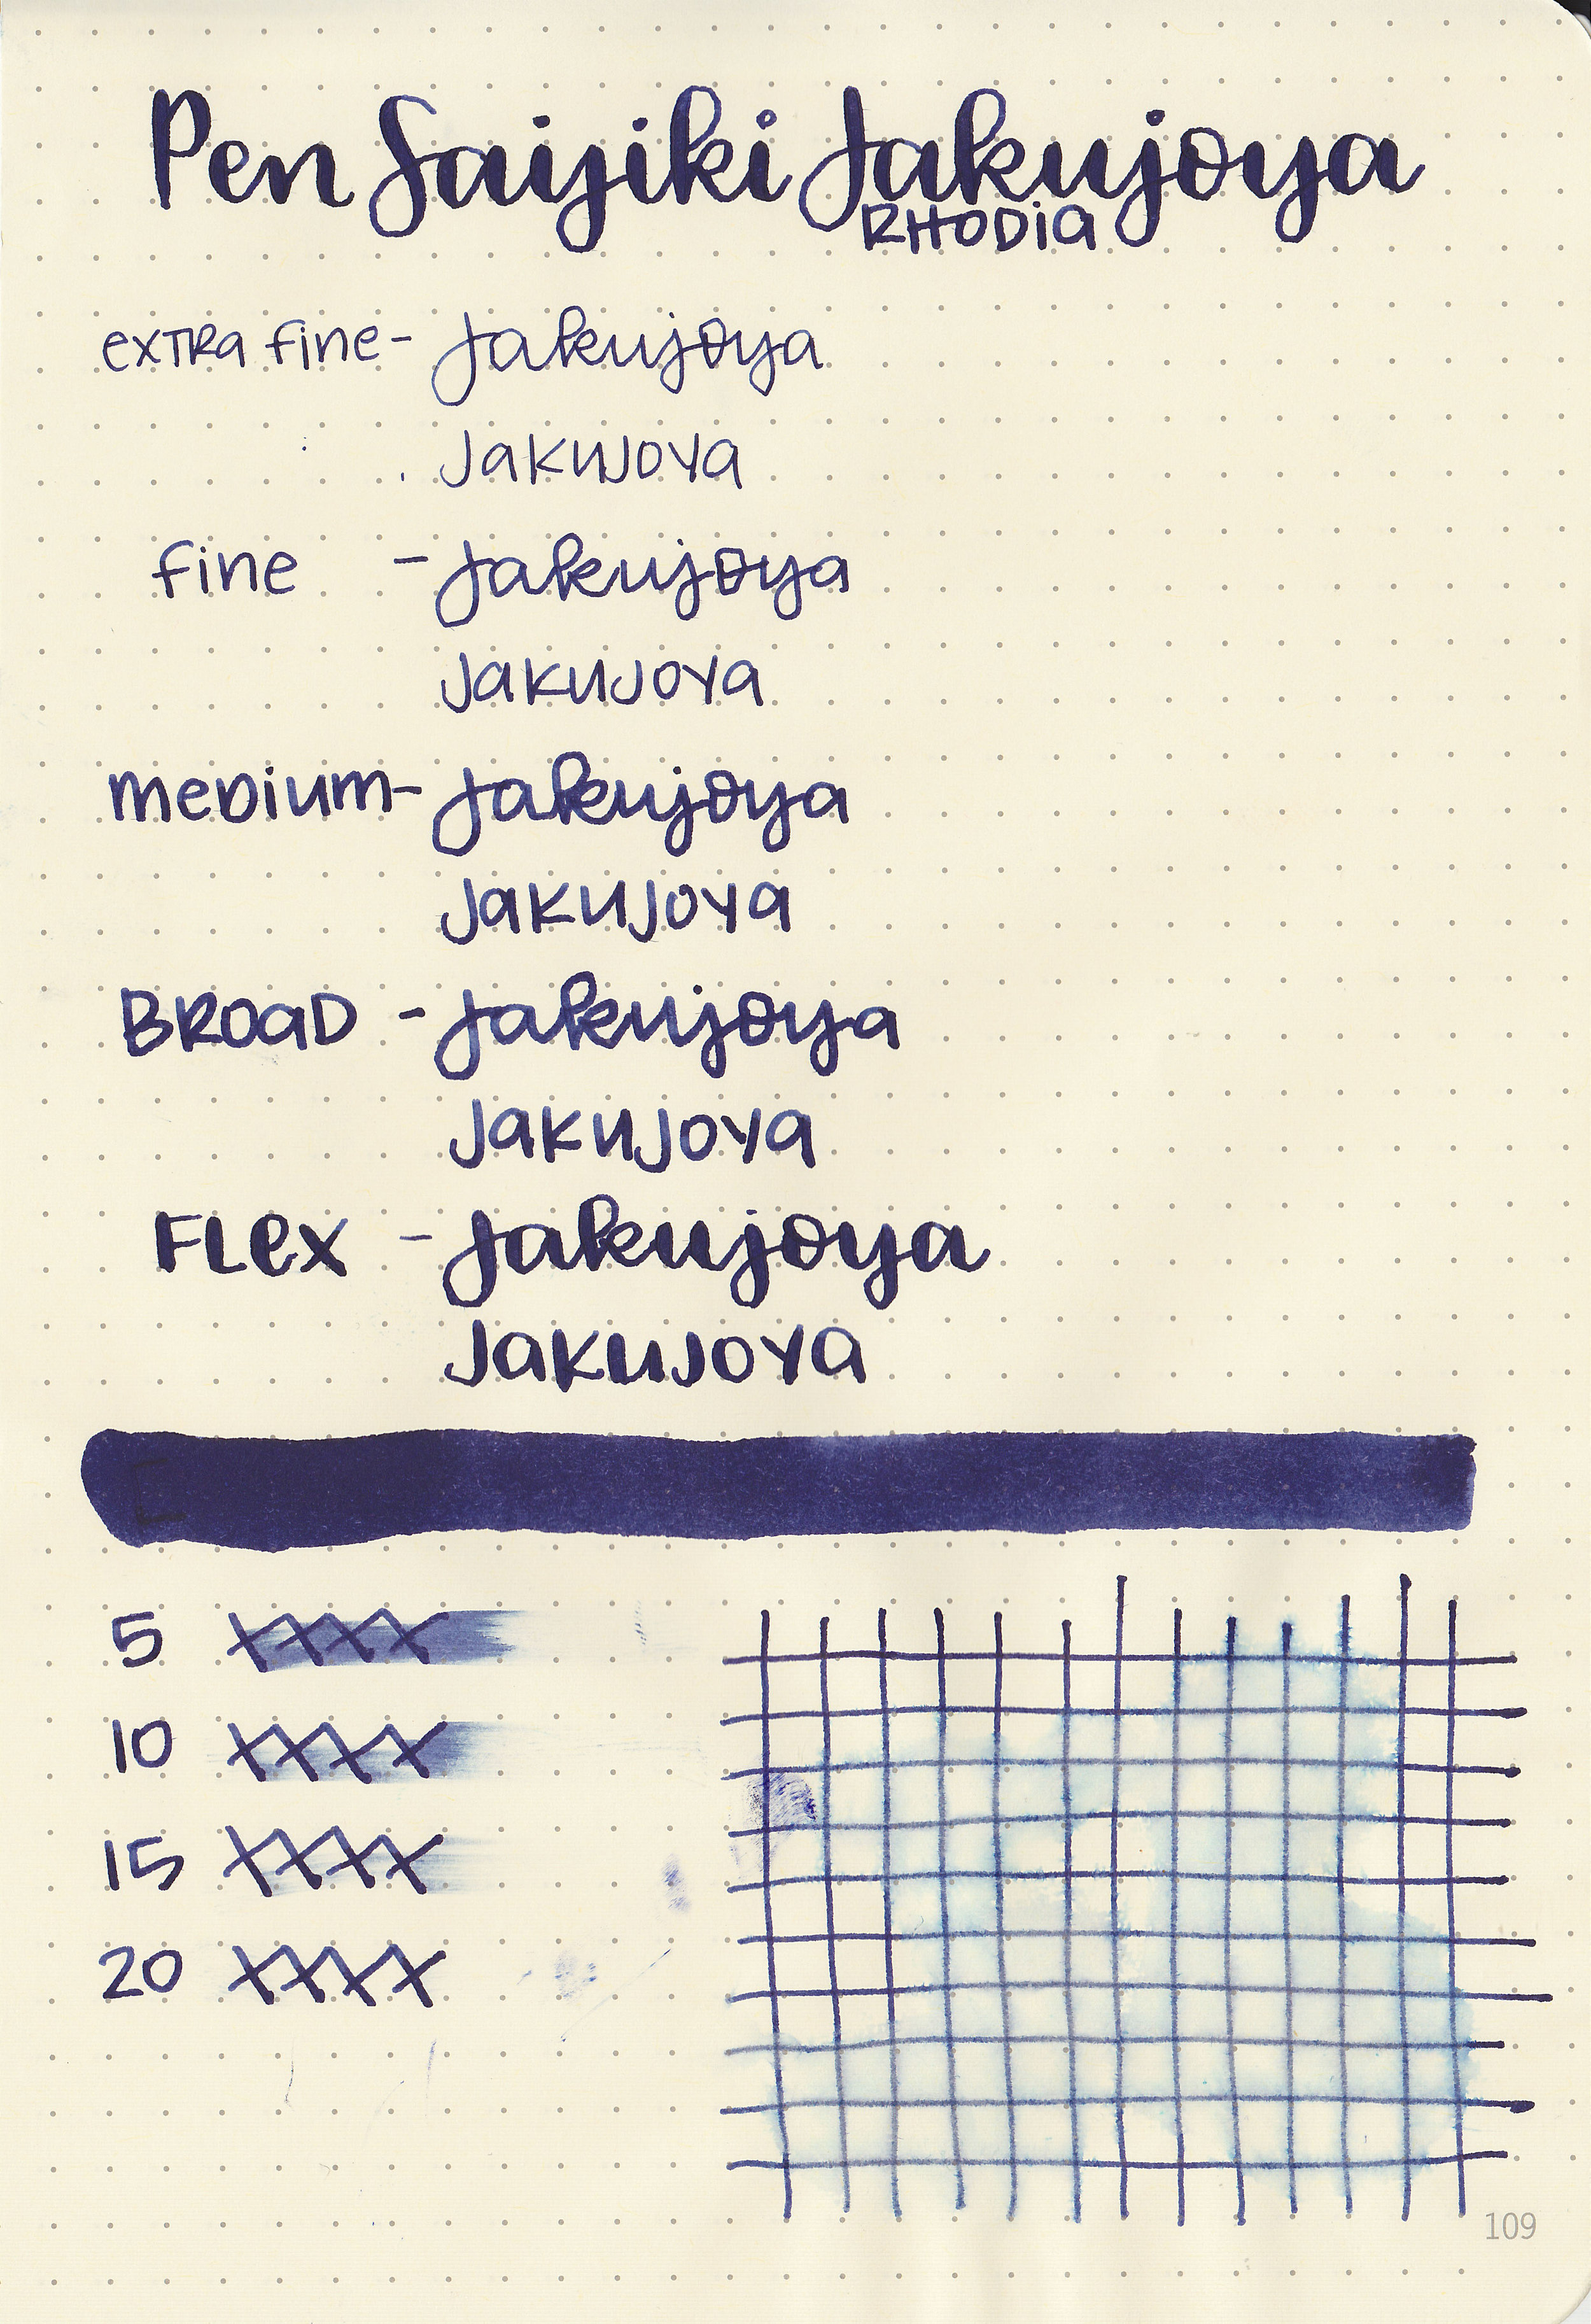 Pen Saiyiki Jakujoya
RHODIA
extra fine - Jakujoya
Jakujoya
fine - Jakujoya
Jakujoya
medium - Jakujoya
Jakujoya
Broad - Jakujoya
Jakujoya
Flex - Jakujoya
Jakujoya
5 XXXX
10 XXXX
15 XXXX
20 XXXX
109